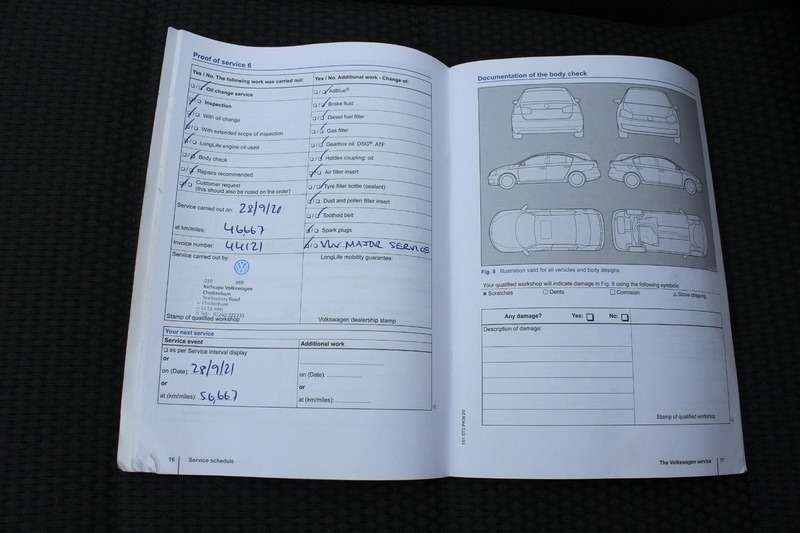 Proof of service 6
Yes / No. The following work was carried out:
❑ / ❑ Oil change service
❑ / ❑ Inspection
❑ / ❑ With oil change
❑ / ❑ With extended scope of inspection
❑ / ❑ LongLife engine oil used
❑ / ❑ Body check
❑ / ❑ Repairs recommended
❑ / ❑ Customer request
(this should also be noted on the order)
Service carried out on: 28/9/20
at km/miles: 46667
Invoice number: 44121
Service carried out by:
Volkswagen
Cheltenham
Tewkesbury Road
Cheltenham
Stamp of qualified workshop
Yes / No. Additional work - Change of:
❑ / ❑ AdBlue®
❑ / ❑ Brake fluid
❑ / ❑ Diesel fuel filter
❑ / ❑ Gas filter
❑ / ❑ Gearbox oil: DSG®, ATF
❑ / ❑ Haldex coupling: oil
❑ / ❑ Air filter insert
❑ / ❑ Tyre filler bottle (sealant)
❑ / ❑ Dust and pollen filter insert
❑ / ❑ Toothed belt
❑ / ❑ Spark plugs
❑ / ❑ VW MAJOR SERVICE
LongLife mobility guarantee:
Volkswagen dealership stamp
Your next service
Service event
❑ as per Service interval display
or
on (Date): 28/9/21
or
at (km/miles): 56,667
Additional work
on (Date):
or
at (km/miles):
16 Service schedule
Documentation of the body check
Fig. 8 Illustration valid for all vehicles and body designs.
Your qualified workshop will indicate damage in Fig. 8 using the following symbols:
Scratches Dents Corrosion Stone chipping.
Any damage? Yes: ❑ No: ❑
Description of damage:
Stamp of qualified workshop
The Volkswagen service 17